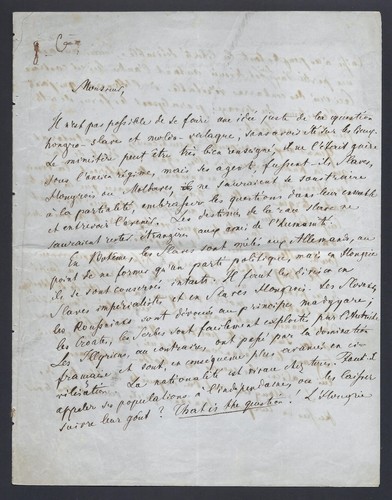 Monsieur,
Il n'est pas possible de se faire une idée juste de la question
hongro-slave et moldo-valaque, sans avoir été sur les lieux.
Le ministère peut être très bien renseigné, il ne l'était guère
sous l'ancien régime, mais ses agents, fussent-ils Slaves,
Hongrois ou Moldaves, ne sauraient se soustraire
à la partialité, embrasser les questions dans leur ensemble
et entrevoir l'avenir. Les destins de la race slave ne
sauraient rester étrangers aux amis de l'humanité.
En Bohème, les Slaves sont mêlés aux Allemands, au
point de ne former qu'un parti politique, mais en Hongrie
ils se sont conservés intacts. Il faut les diviser en
Slaves impérialistes et en Slaves Hongrois. Les Slovaks,
les Rousniaks sont dévoués au principe madgyare;
les Croates, les Serbes sont facilement exploités par l'Autriche.
Les Illyriens, au contraire, ont passé par la domination
française et sont, en conséquence plus avancés en ci-
vilisation. La nationalité est vivace chez tous. Faut-il
appeler ces populations à l'indépendance, ou les laisser
suivre leur goût? That is the question! L'Hongrie